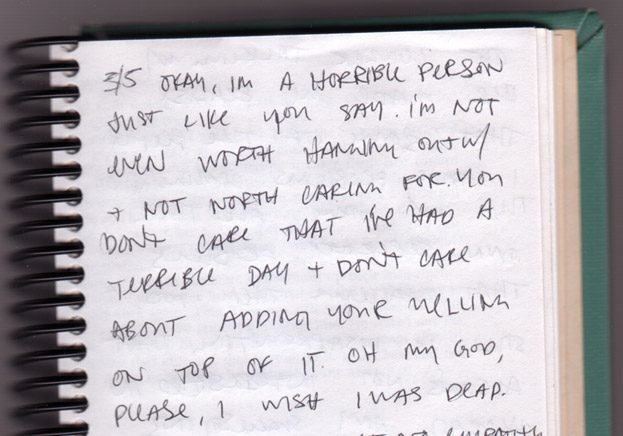 3/5 OKAY, IM A HORRIBLE PERSON
JUST LIKE YOU SAY. I'M NOT
EVEN WORTH HANGING OUT W/
+ NOT WORTH CARING FOR. YOU
DON'T CARE THAT I'VE HAD A
TERRIBLE DAY + DON'T CARE
ABOUT ADDING YOUR YELLING
ON TOP OF IT. OH MY GOD,
PLEASE, I WISH I WAS DEAD.
SYMPATHY